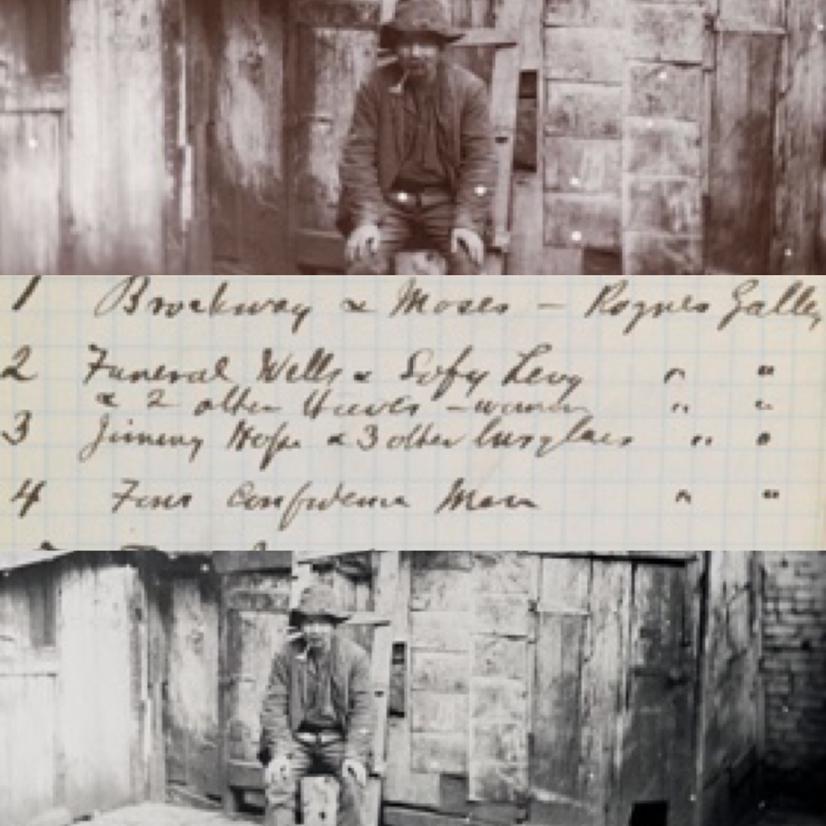 1 Brockway & Moses - Rogues Galley
2 Funeral Wells & Sofy Levy " "
& 2 other thieves - women " "
3 Jimmy Hope & 3 other burglars " "
4 Four Confidence Men " "